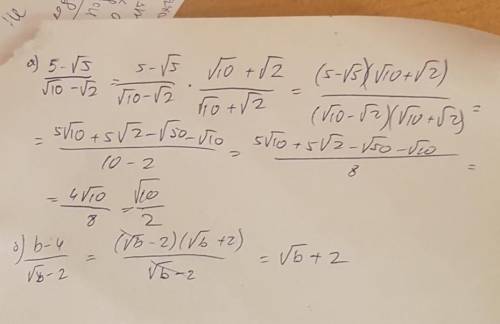 а) (5-√5)/(√10-√2) = (5-√5)/(√10-√2) · (√10+√2)/(√10+√2) = ((5-√5)(√10+√2))/((√10-√2)(√10+√2)) =
= (5√10+5√2-√50-√10)/(10-2) = (5√10+5√2-√50-√10)/8 =
= 4√10/8 = √10/2
б) (b-4)/(√b-2) = ((√b-2)(√b+2))/(√b-2) = √b+2